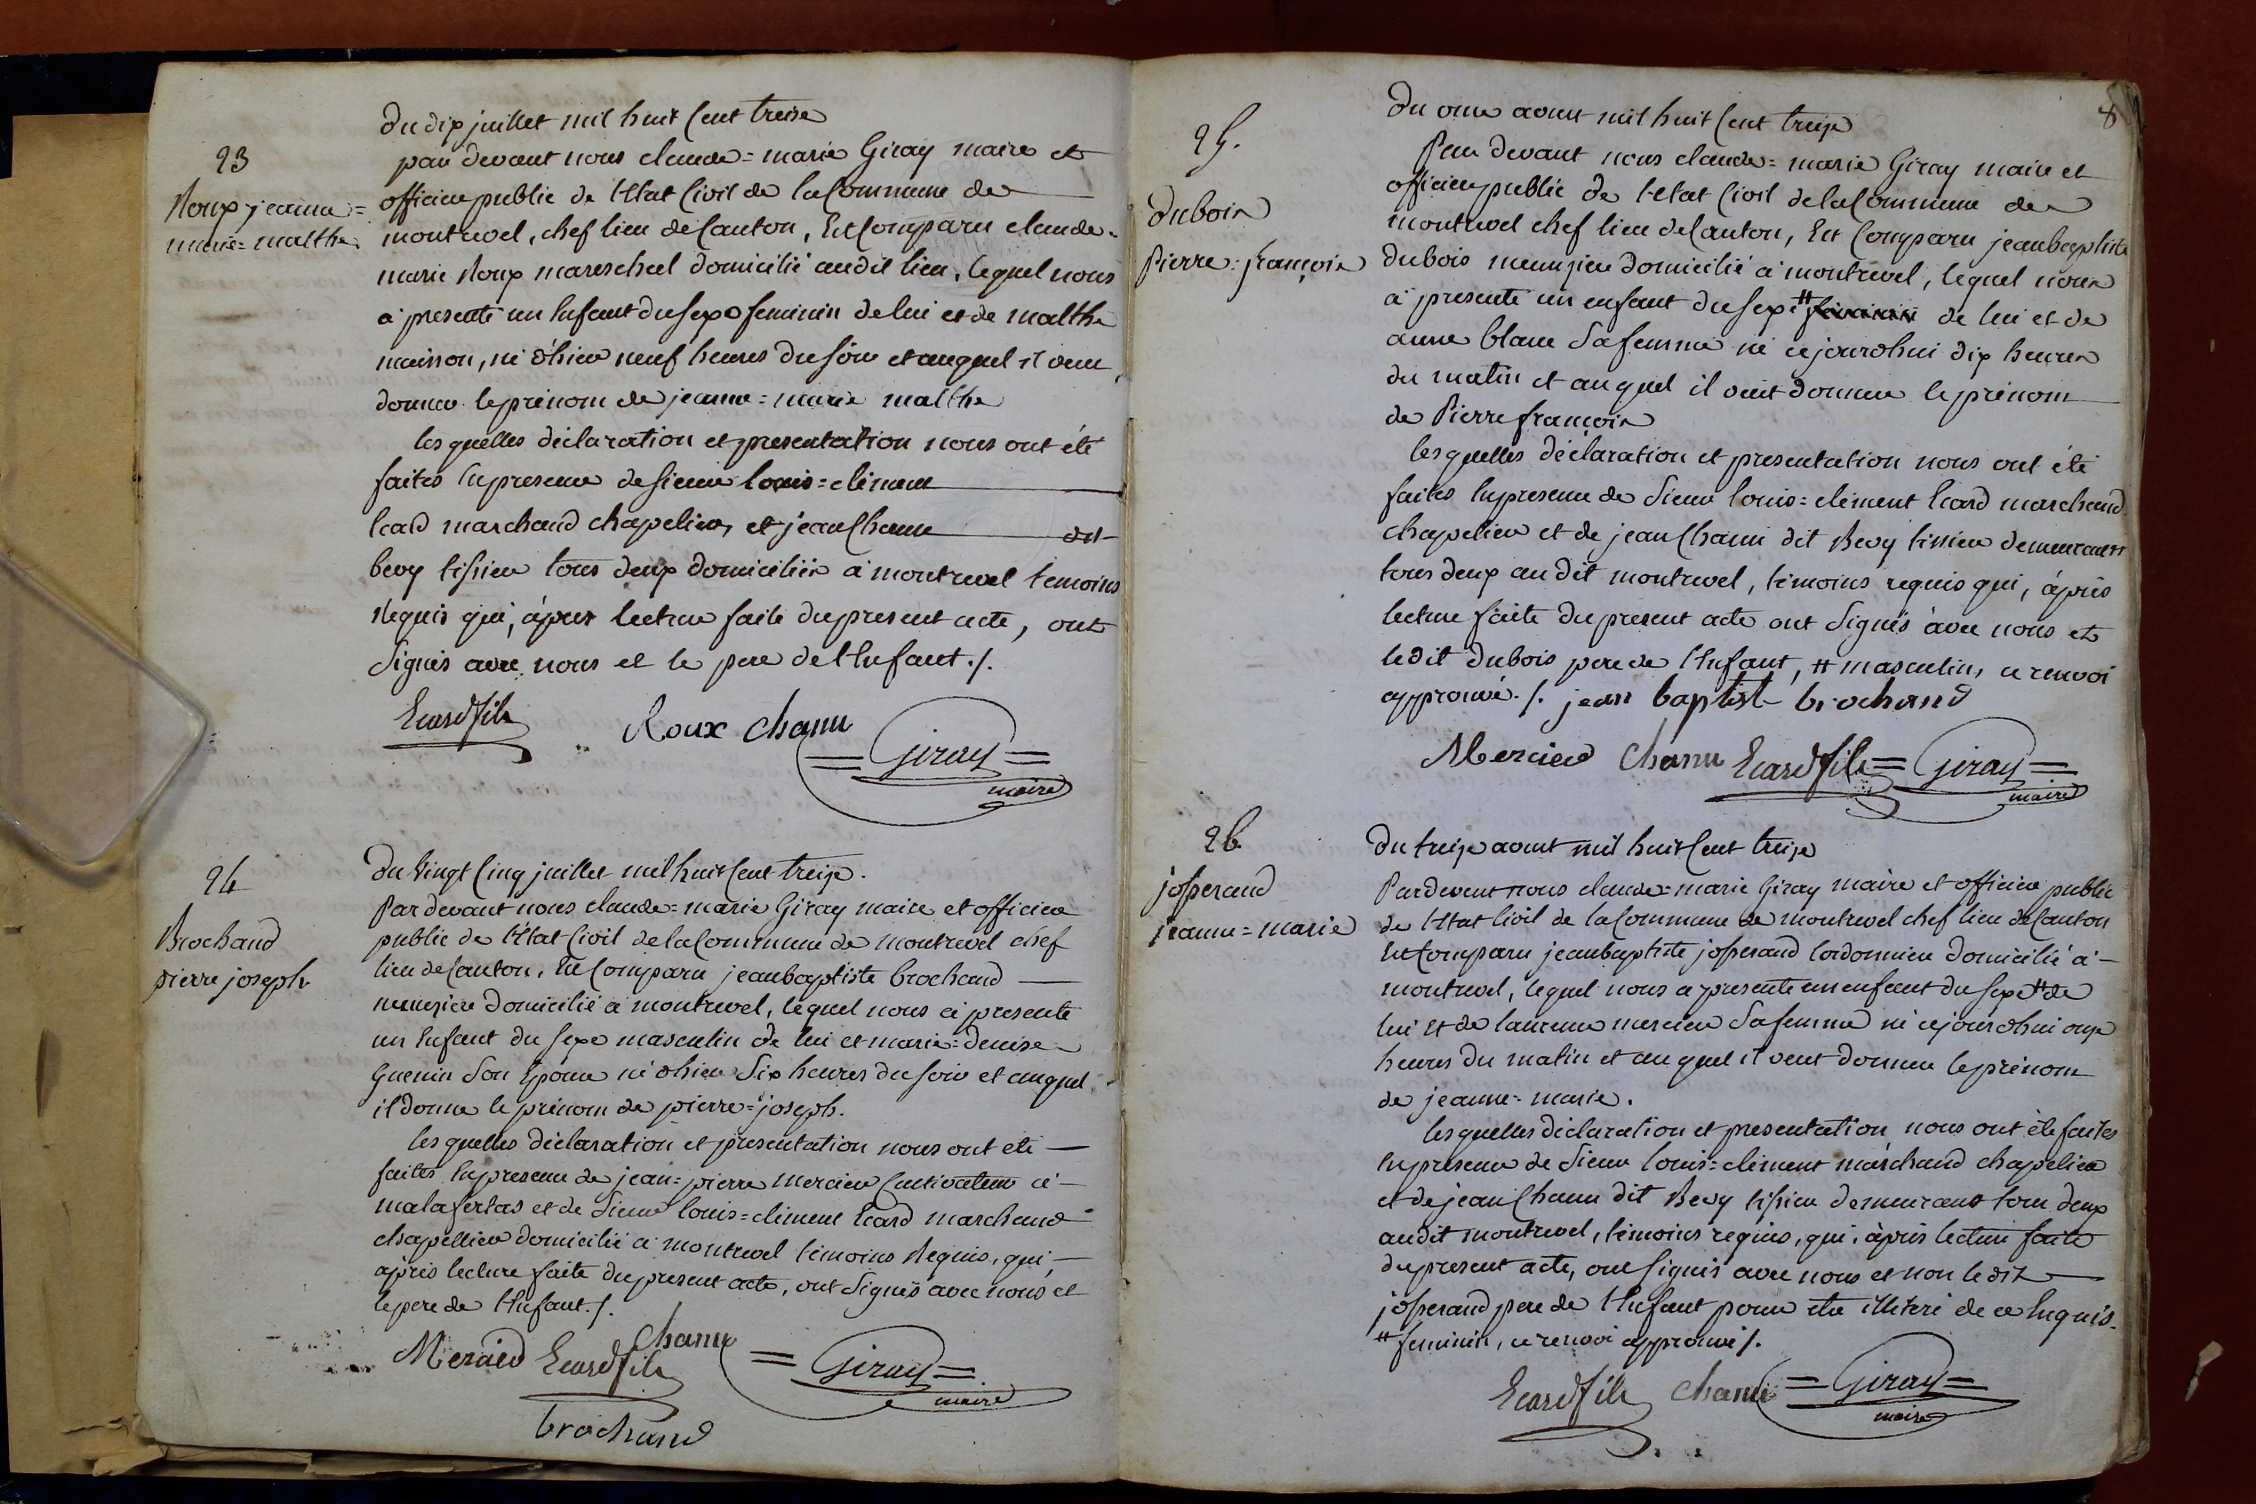 23
Roux jeanne=
marie=malthe
Du dix juillet mil huit Cent treise
par devant nous claude=marie Giray maire et
officier public de l'Etat Civil de la Commune de
montrevel, chef lieu de Canton, Est Comparu claude=
marie Roux mareschal domicilié audit lieu, lequel nous
a presenté un Enfant du sexe feminin de lui et de malthe
maison, né d'hier neuf heures du soir et auquel il veut
donner le prénom de jeanne=marie malthe
les quelles déclaration et presentation nous ont été
faites En presence de sieur louis=clément
Ecard marchand chapelier, et jean Chanu dit
bevy tissier tous deux domiciliés a montrevel temoins
Requis qui, àpres lecture faite du present acte, ont
Signés avec nous et le pere de l'Enfant ./.
Ecard fils Roux chanu = Giray =
maire
24
Brochand
pierre joseph
Du Vingt Cinq juillet mil huit Cent treize.
Par devant nous claude=marie Giray maire et officier
public de l'État Civil de la Commune de montrevel chef
lieu de Canton, Est Comparu jean baptiste brochand
menuzier domicilié a montrevel, lequel nous a presenté
un Enfant du sexe masculin de lui et marie=denise
Guenin Son Epouse né d'hier Six heures du soir et auquel
il donne le prénom de pierre=joseph.
les quelles déclaration et presentation nous ont été
faites En presence de jean=pierre mercier Cultivateur à
malafertas et de Sieur louis=clément Ecard marchand
chapellier domicilié a montrevel témoins Requis, qui
après lecture faite du present acte, ont Signés avec nous et
le pere de l'Enfant ./.
Mercied Ecard fils chanu = Giray =
maire
brochand
8
25.
Dubois
Pierre=françois
Du onze aout mil huit Cent treize
Par devant nous claude=marie Giray maire et
officier public de l'etat Civil de la Commune de
montrevel chef lieu de Canton, Est Comparu jean baptiste
dubois menuzier domicilié a montrevel, lequel nous
a presenté un enfant du sexe # feminin de lui et de
anne blanc Sa femme né ce jourd'hui dix heures
du matin et auquel il veut donner le prénom
de Pierre françois
les quelles déclaration et presentation nous ont été
faites En presence de Sieur louis=clément Ecard marchand
chapelier et de jean Chanu dit Bevy tissier demeurants
tous deux au dit montrevel, témoins requis qui, àprès
lecture faite du present acte ont Signés àvec nous et
le dit dubois pere de l'Enfant, # masculin, ce renvoi
approuvé ./. jean baptist brochand
Mercied Chanu Ecard fils = Giray =
maire
26
josserand
jeanne=marie
Du treize aout mil huit Cent treize
Par devant nous claude=marie Giray maire et officier public
de l'Etat Civil de la Commune de montrevel chef lieu de Canton
Est Comparu jean baptiste josserand Cordonnier domicilié a
montrevel, lequel nous a presenté un enfant du sexe # de
lui Et de laurence mercier Sa femme né ce jourd'hui onze
heures du matin et auquel il veut donner le prénom
de jeanne=marie.
les quelles déclaration et presentation nous ont été faites
En presence de Sieur louis=clément marchand chapelier
et de jean Chanu dit Bevy tissier demeurant tous deux
audit montrevel, témoins requis, qui, àprès lecture faite
du present acte, ont signés avec nous et non le dit
josserand pere de l'Enfant pour etre illiteré de ce Enquis
# feminin, ce renvoi approuvé ./.
Ecard fils chanu = Giray =
maire